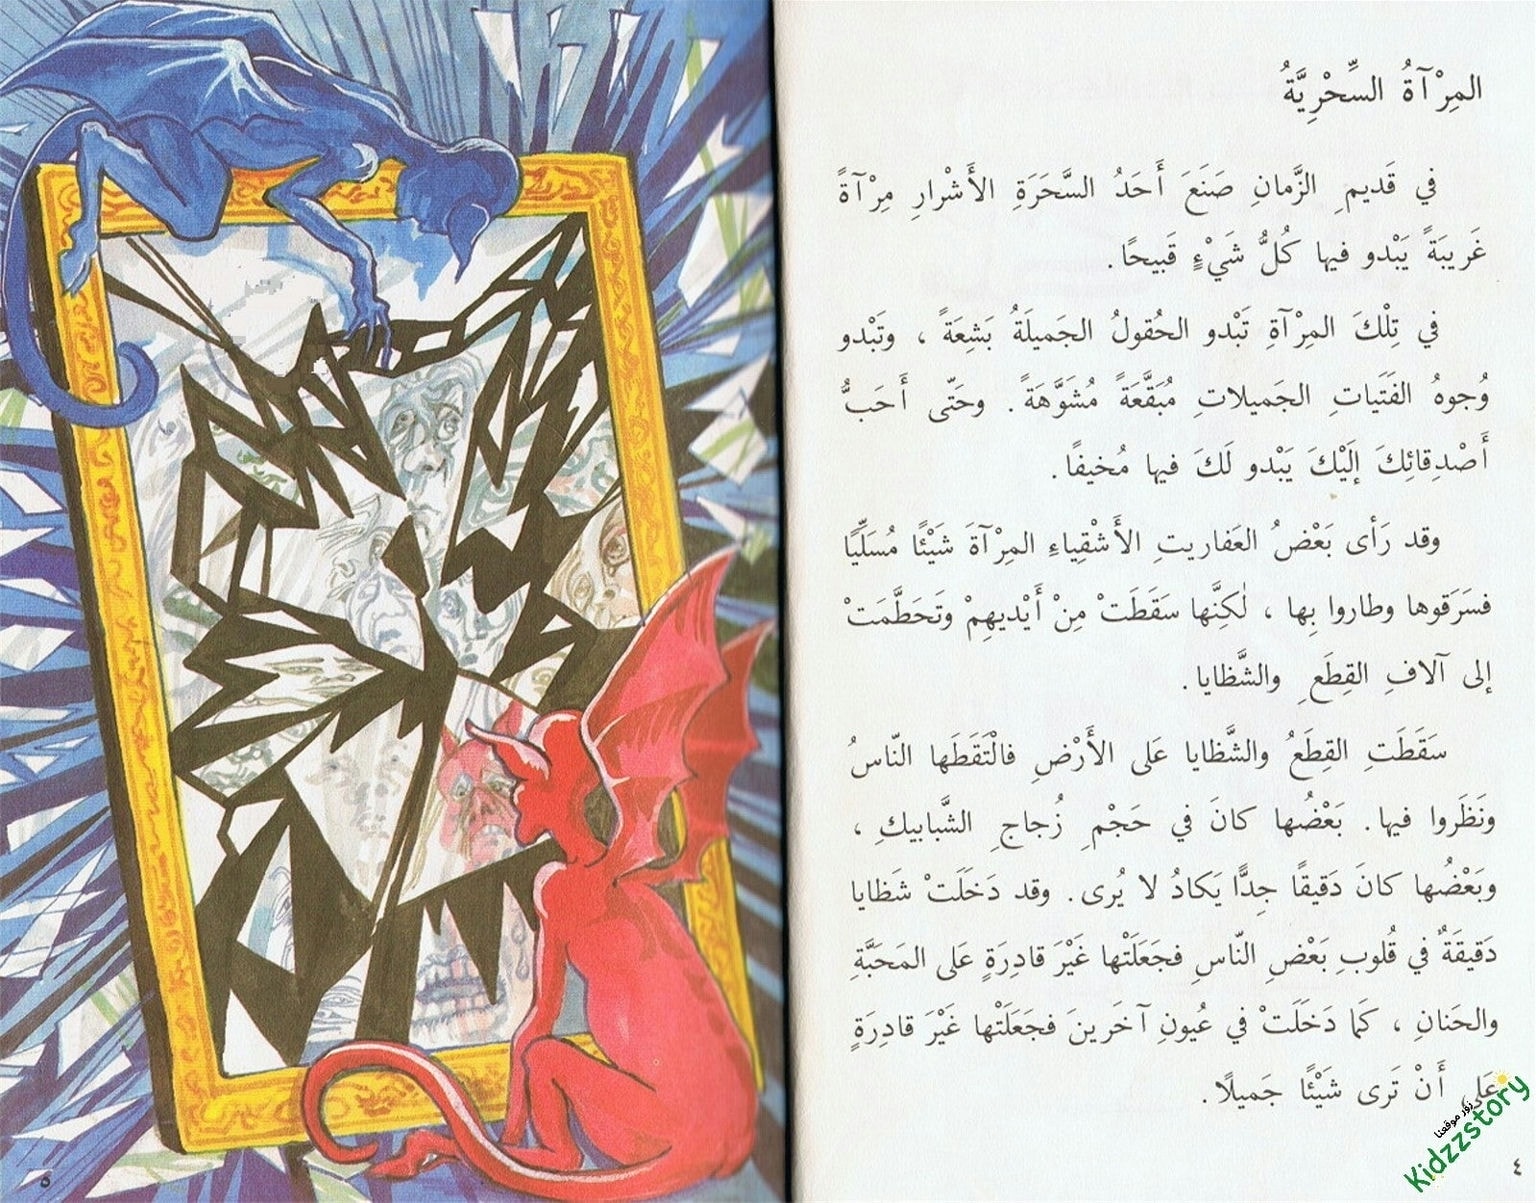 المِرْآةُ السِّحْرِيَّةُ
في قَديمِ الزَّمانِ صَنَعَ أَحَدُ السَّحَرَةِ الأَشْرارِ مِرْآةً
غَريبَةً يَبْدو فيها كُلُّ شَيْءٍ قَبيحًا.
في تِلْكَ المِرْآةِ تَبْدو الحُقولُ الجَميلَةُ بَشِعَةً ، وتَبْدو
وُجوهُ الفَتَياتِ الجَميلاتِ مُبَقَّعَةً مُشَوَّهَةً. وحَتّى أَحَبُّ
أَصْدِقائِكَ إلَيْكَ يَبْدو لَكَ فيها مُخيفًا.
وقد رَأى بَعْضُ العَفاريتِ الأَشْقِياءِ المِرْآةَ شَيْئًا مُسَلِّيًا
فسَرَقوها وطاروا بِها ، لٰكِنَّها سَقَطَتْ مِنْ أَيْديهِمْ وتَحَطَّمَتْ
إلى آلافِ القِطَعِ والشَّظايا.
سَقَطَتِ القِطَعُ والشَّظايا عَلى الأَرْضِ فالْتَقَطَها النّاسُ
ونَظَروا فيها. بَعْضُها كانَ في حَجْمِ زُجاجِ الشَّبابيكِ ،
وبَعْضُها كانَ دَقيقًا جِدًّا يَكادُ لا يُرى. وقد دَخَلَتْ شَظايا
دَقيقَةٌ في قُلوبِ بَعْضِ النّاسِ فجَعَلَتْها غَيْرَ قادِرَةٍ عَلى المَحَبَّةِ
والحَنانِ ، كَما دَخَلَتْ في عُيونِ آخَرينَ فجَعَلَتْها غَيْرَ قادِرَةٍ
عَلى أَنْ تَرى شَيْئًا جَميلًا.
زوّر موقعنا
Kidzzstory
٤
٥